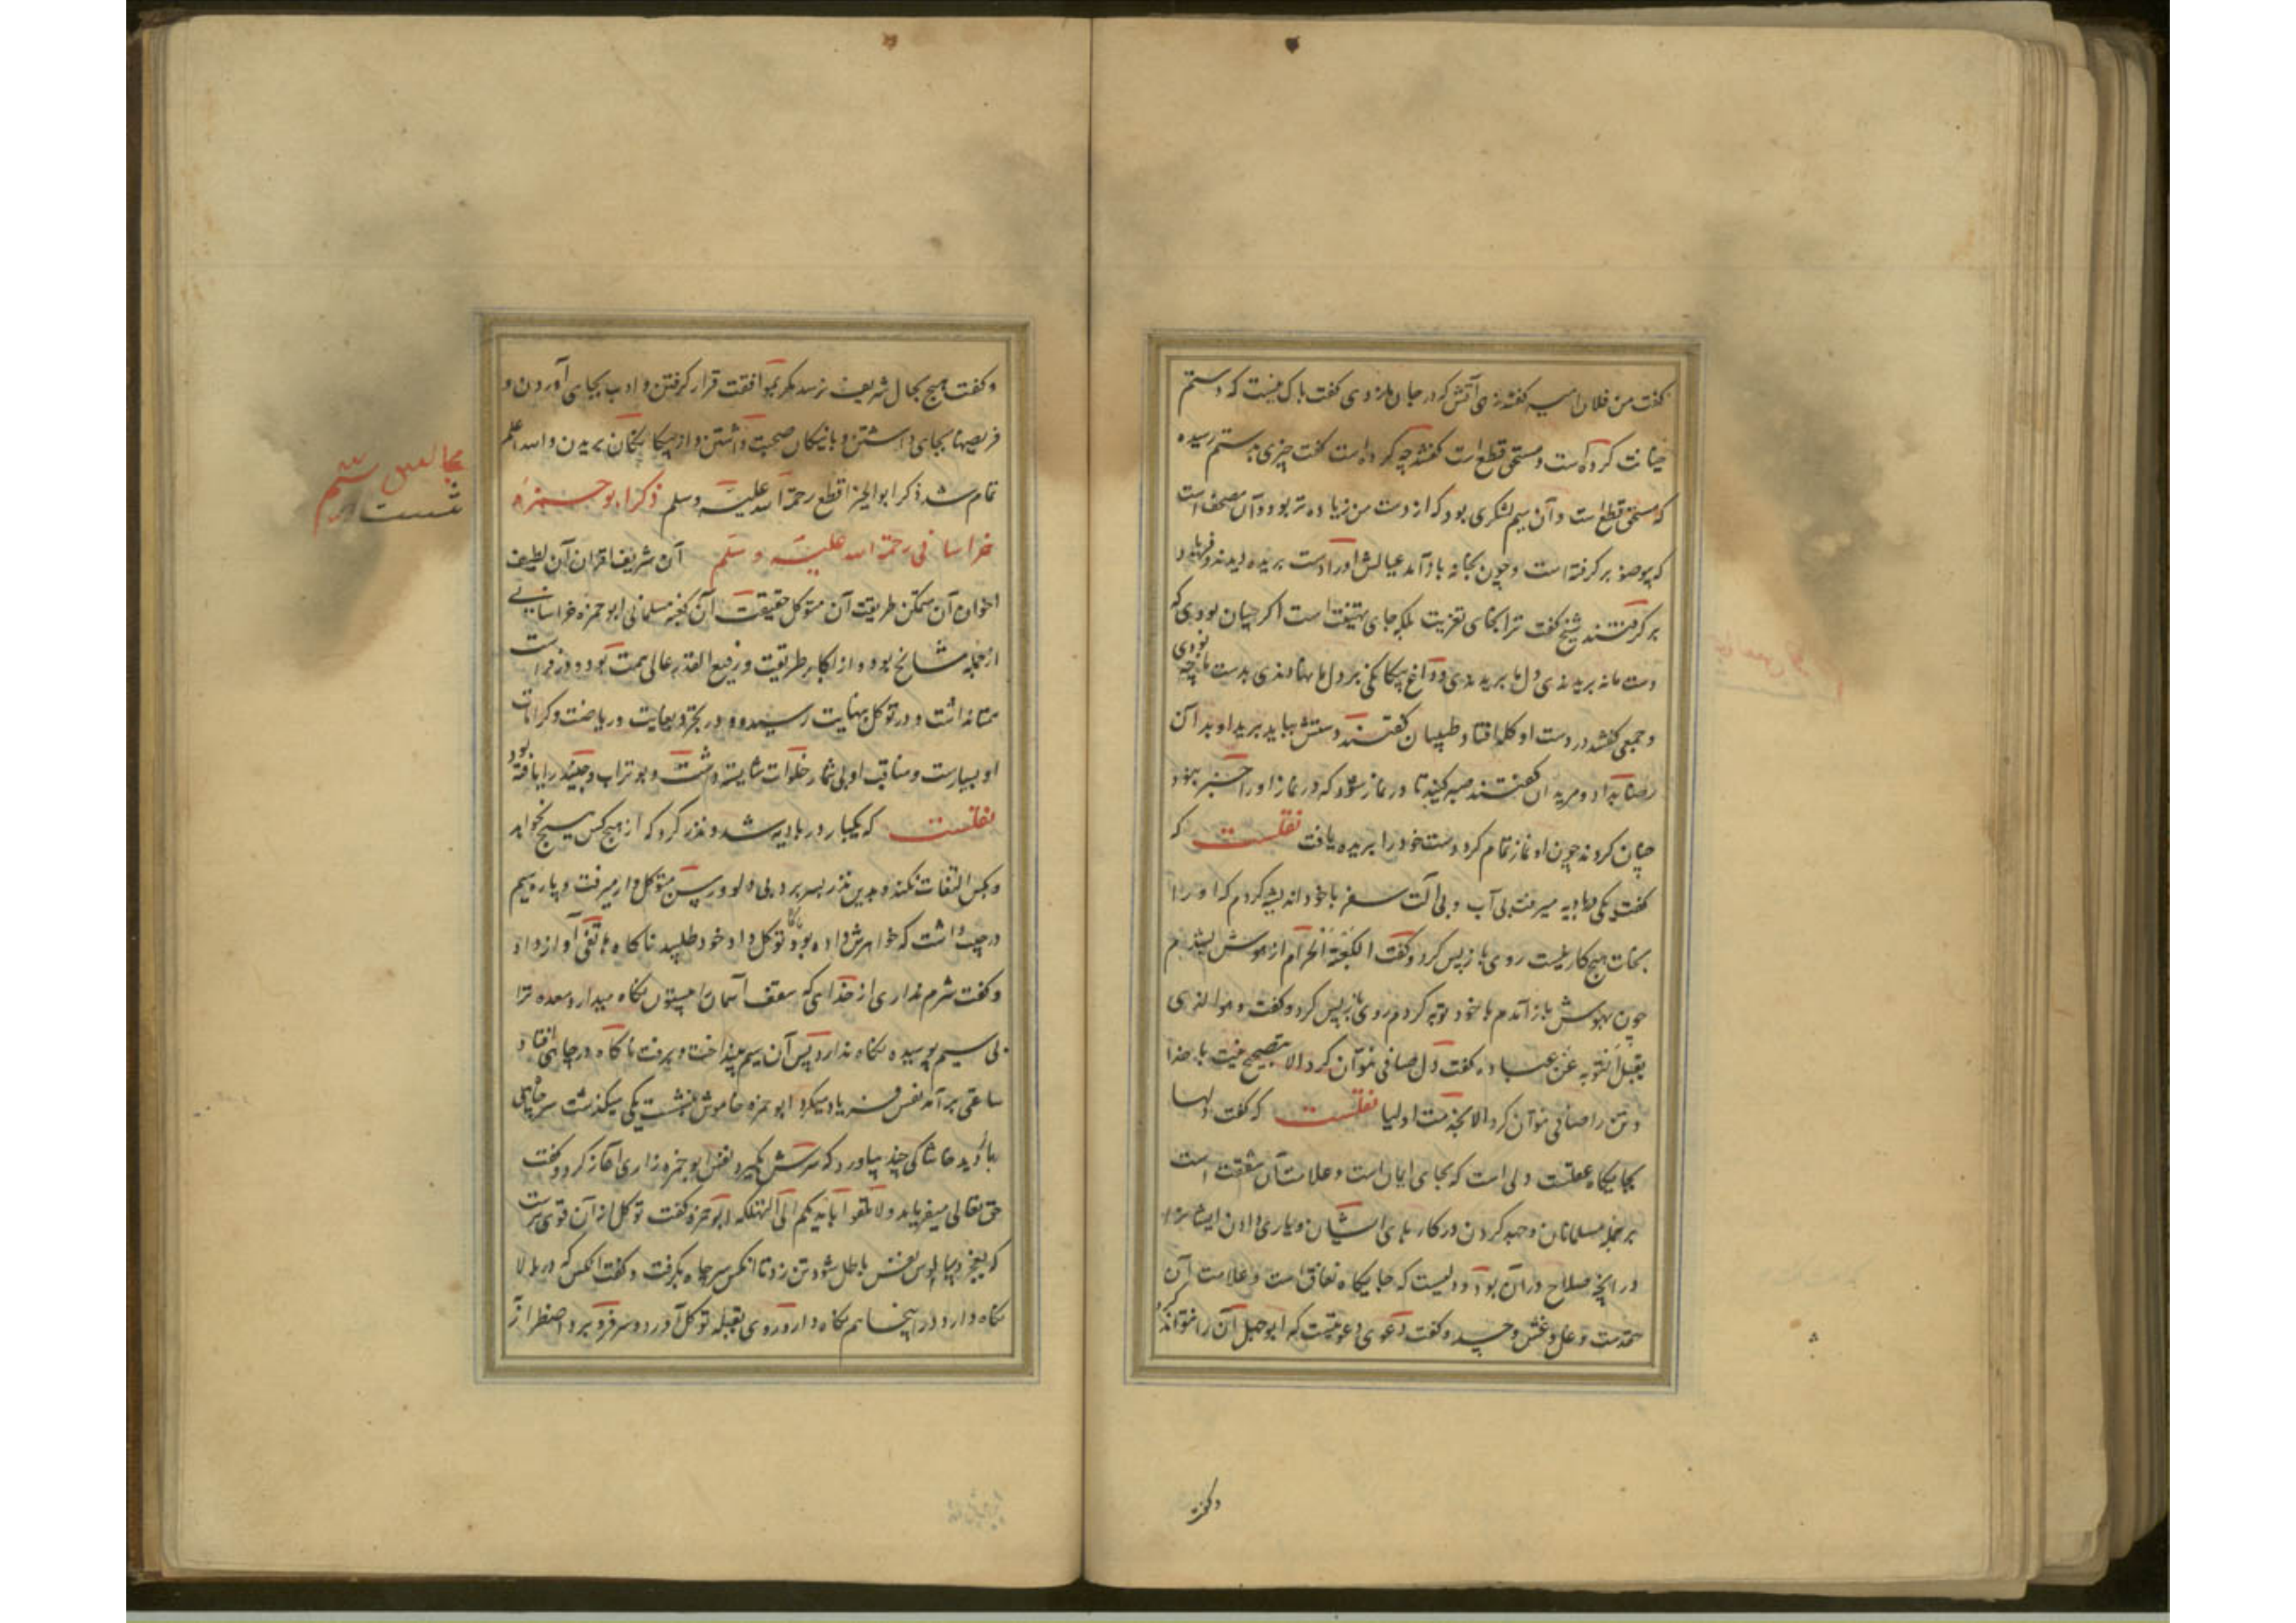 گفت من فلان را سیه گفتند زهی آتش که در جان ما زدی گفت باک نیست که دستم
خیانت کرده است و مستحق قطع است گفتند چه کرده است گفت چیزی بدستم رسیده
که مستحق قطع است و آن سیم لشکری بود که از دست من زیاده تر بود و آن مصحف است
که بی وضو بر گرفته است و چون بخانه باز آمد عیالش او را دست بریده دیدند و فریاد
بر گرفتند شیخ گفت ترا بجای تعزیت بلکه جای تهنیت است اگر چنان بودی که
دست ما نه بریدندی دل ما بریدندی و داغ بیگانگی بر دل ما نهادندی بدست ما چه بودی
و جمعی گفتند در دست او کله افتاد طبیبان گفتند دستش بباید برید او بدان
رضا نداد و مریدان گفتند صبر کنید تا در نماز شود که در نماز او را خبر نبود
چنان کردند چون او نماز تمام کرد دست خود را بریده یافت نقلست که
گفت یکی در بادیه میرفت بی آب و بی آلت سفر با خود اندیشه کردم که او را
بجان هیچ کار نیست روی باز پس کرد و گفت الغیبة الحرام از هوش بشدم
چون بهوش باز آمدم با خود توبه کردم روی باز پس کرد و گفت و هو الذی
یقبل التوبه عن عباده گفت دل صافی نتوان کرد الا بتصحیح نیت با خدا
و تن را صافی نتوان کرد الا بخدمت اولیا نقلست که گفت دلها
بر جمله مسلمانان و جهد کردن در کارهای ایشان و یاری دادن ایشانرا
در آنچه صلاح در آن بود و دلیست که جایگاه نفاق است و علامت آن
حقدست و غل و غش و حسد و گفت دعوی رعونتیست که ابو جبل آن را نتواند کرد
وگفت
و گفت هیچ بحال شریف نرسد مگر بموافقت قرار گرفتن و ادب بجای آوردن و
فریضها بجای داشتن و با نیکان صحبت داشتن و از بیگانگان بریدن و الله اعلم
تمام شد ذکر ابو الخیر اقطع رحمة الله علیه وسلم ذکر ابو حمزه
خراسانی رحمة الله علیه وسلم آن شریف اقران آن لطیف
اخوان آن متمکن طریقت آن متوکل حقیقت آن کعبه مسلمانی ابو حمزه خراسانی
از جمله مشایخ بود و از اکابر طریقت و رفیع القدر عالی همت بود و در فراست
همتا نداشت و در توکل بنهایت رسیده و در تجرید بغایت و ریاضت و کرامات
او بسیارست و مناقب او بی شمار خلوات شایسته داشت و بو تراب و جنید را یافته بود
نقلست که یکبار در بادیه شد و نذر کرد که از هیچ کس هیچ نخواهد
و بکس التفات نکند و بدین نذر بسر برد بی دلو و رسن متوکل وار میرفت و پاره سیم
در جیب داشت که خواهرش داده بود ناگاه توکل داد خود طلبید ناگاه هاتفی آواز داد
و گفت شرم نداری از خدایی که سقف آسمان را بیستون نگاه میدارد معده ترا
بی سیم پوسیده نگاه ندارد پس آن سیم بینداخت و برفت ناگاه در چاهی افتاد و
ساعتی برآمد نفس فریاد میکرد ابو حمزه خاموش بنشست یکی میگذشت سر چاهی
باز دید خاشاکی چند بیاورد که سرش بگیرد نفس ابو حمزه زاری آغاز کرد و گفت
حق تعالی میفرماید و لا تلقوا بایدیکم الی التهلکه ابو حمزه گفت توکل از آن قوی ترست
که بعجز و سالوس نفس باطل شود تن زد تا آنکس سر چاه بگرفت و گفت آنکس که در بالا
نگاه دارد در اینجا هم نگاه دارد روی بقبله توکل آورد و سر فرو برد و اضطرار از
مجالس ششم